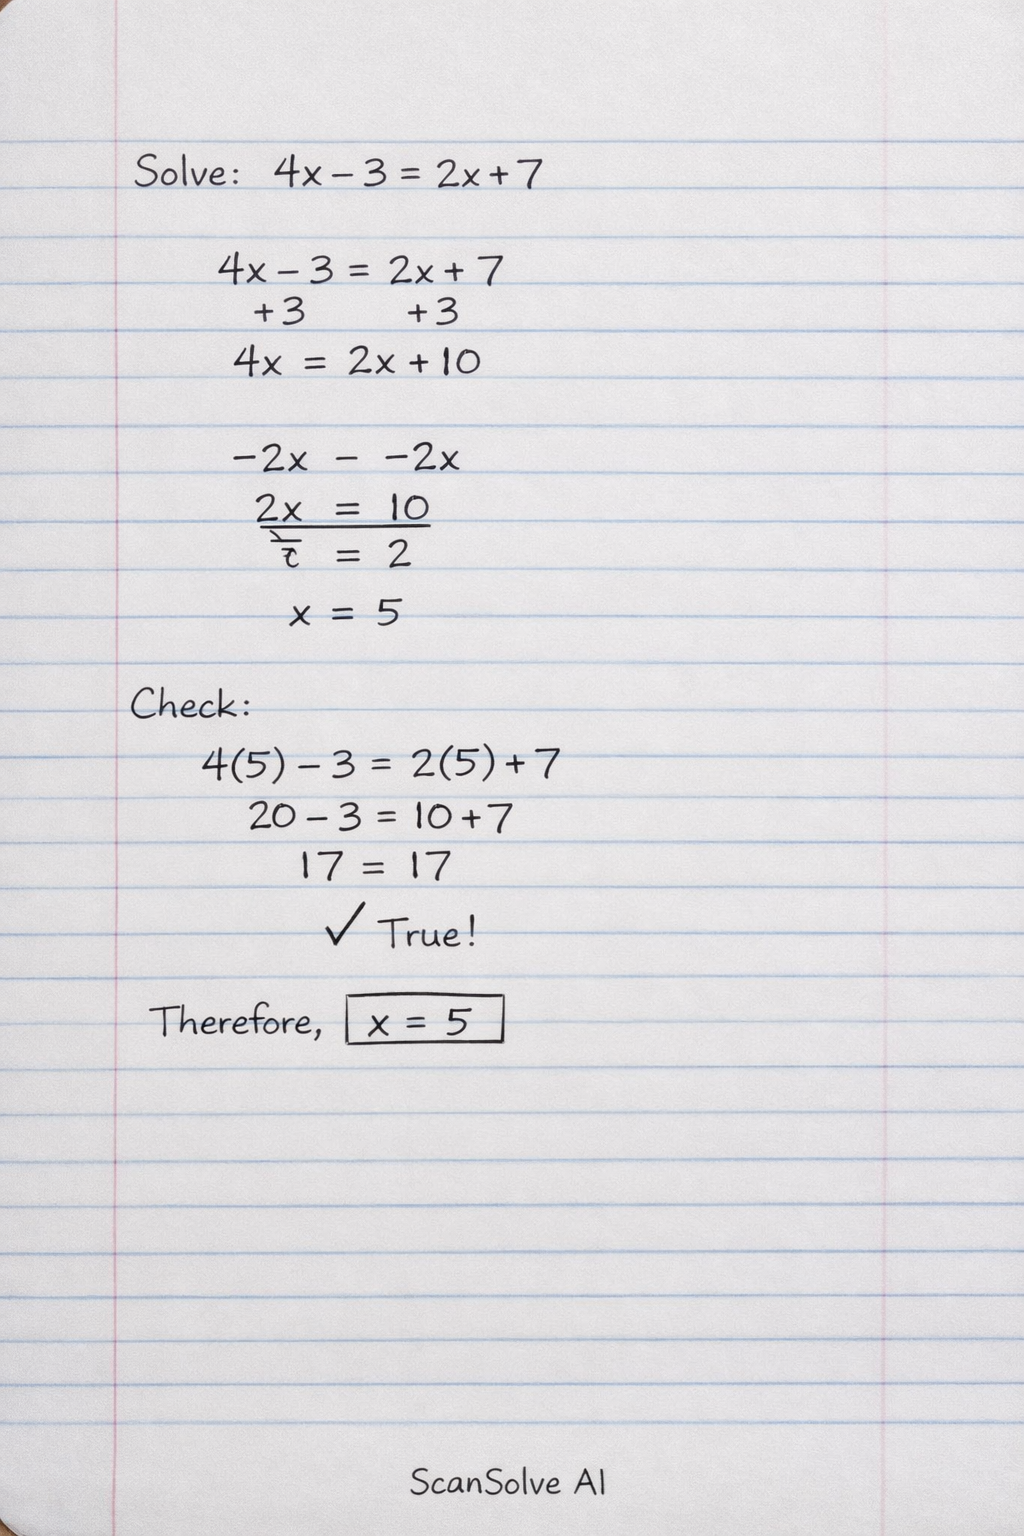 Solve: 4x – 3 = 2x + 7
4x – 3 = 2x + 7
+3 +3
4x = 2x + 10
–2x – –2x
2x = 10
= 2
x = 5
Check:
4(5) – 3 = 2(5) + 7
20 – 3 = 10 + 7
17 = 17
✓ True!
Therefore, x = 5
ScanSolve AI